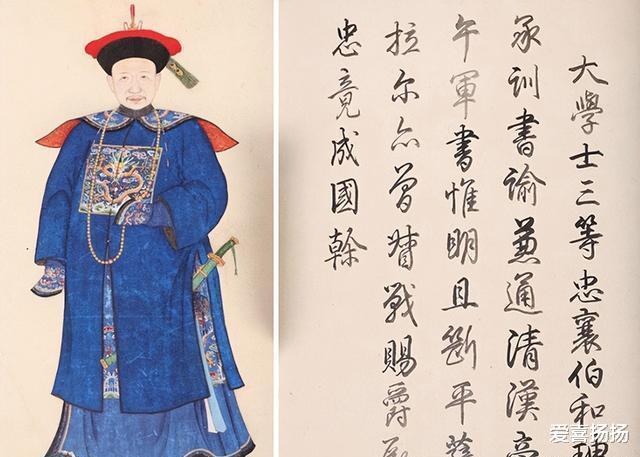 大學士三等忠襄伯和珅
承訓書諭兼通清漢旁
午軍書惟明且斷平薩
拉尔亦曾督戰賜爵勵
忠竟成國幹
爱喜扬扬